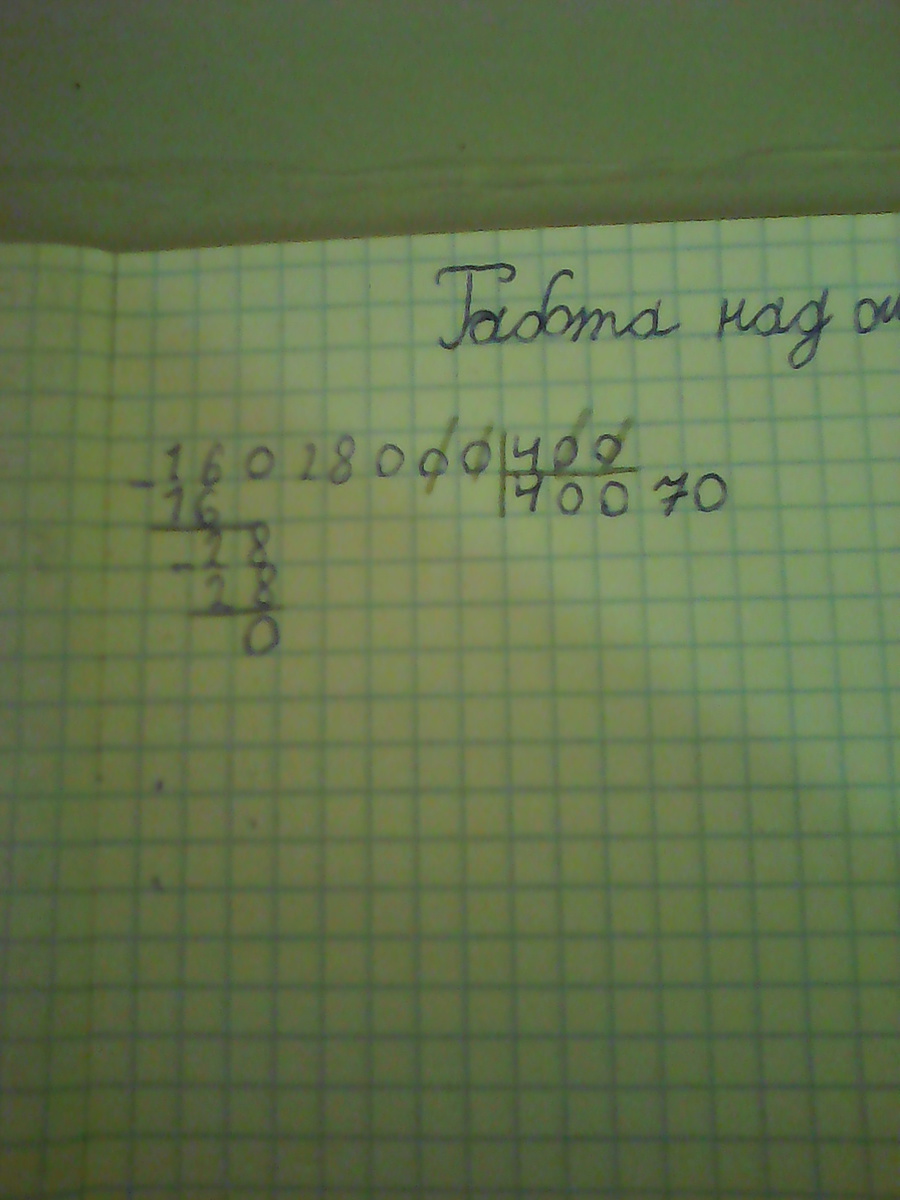 Работа над
- 160 28 000 | 400
16 | 400 70
- 28
28
0